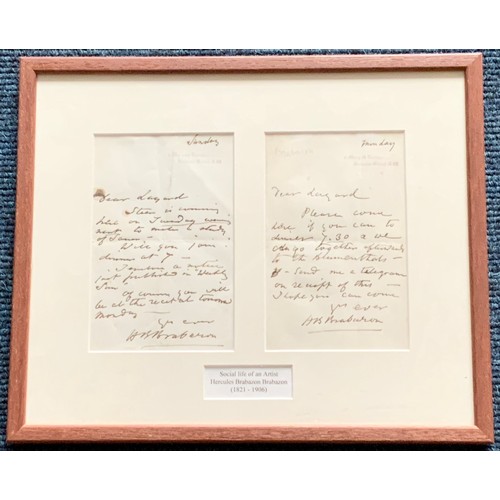 Sunday
Dear Layard
Steer is coming
here on Tuesday
next to make a study
of
Will you dine
7
just published in Weekly
Sun
Of course you will
be at the recital tomorrow
Monday
Yrs ever
HBBrabazon
Dear Layard
Please come
here if you can to
dinner 7.30 & we
can go together afterwards
to the Blumenthals -
send me a telegram
on receipt of this -
I hope you can come
Yrs ever
HBBrabazon
Social life of an Artist
Hercules Brabazon Brabazon
(1821 - 1906)